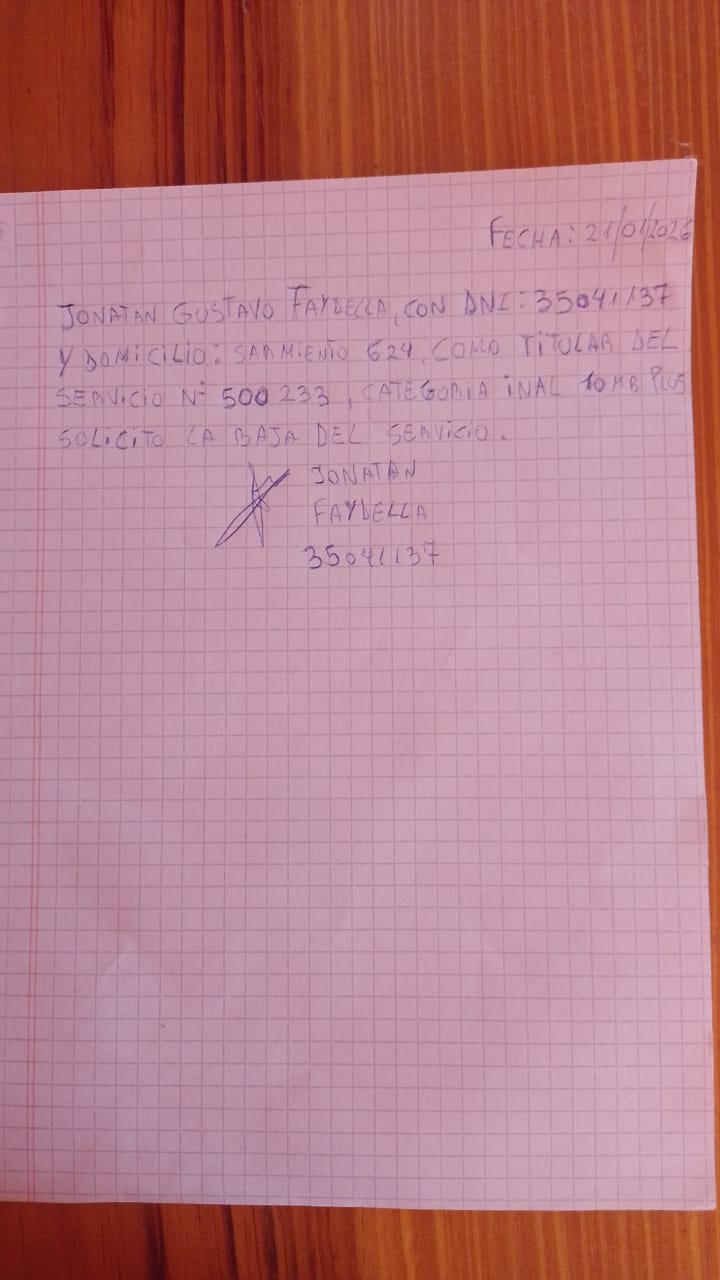 FECHA: 21/01/2026
JONATAN GUSTAVO FAYDELLA, CON DNI: 35041137
Y DOMICILIO: SARMIENTO 624, COMO TITULAR DEL
SERVICIO Nº 500 233, CATEGORIA INAL 10 MB PLUS
SOLICITO LA BAJA DEL SERVICIO.
JONATAN
FAYDELLA
35041137